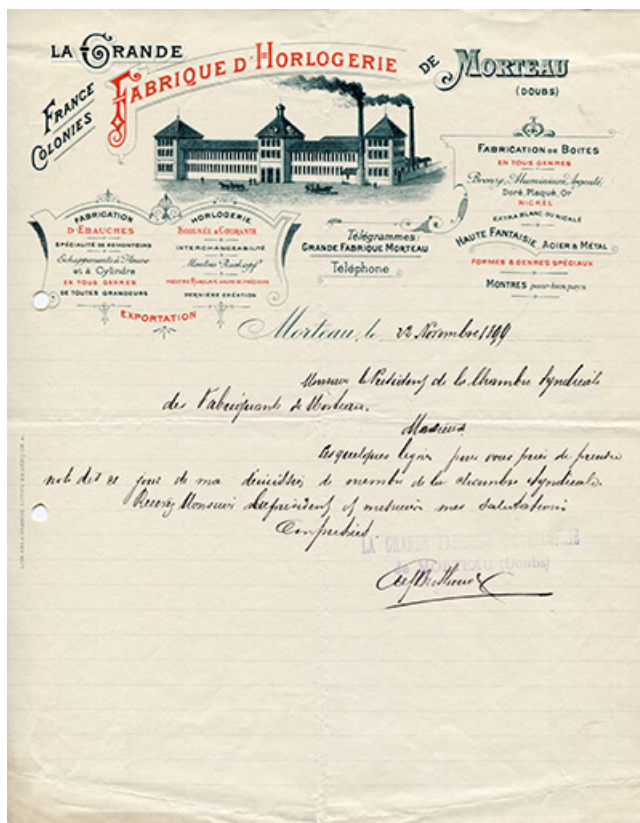 LA GRANDE
FABRIQUE D'HORLOGERIE
DE MORTEAU
(DOUBS)
FRANCE
COLONIES
FABRICATION
D'EBAUCHES
SPÉCIALITÉ DE REMONTOIRS
Echappements à Ancre
et à Cylindre
EN TOUS GENRES
DE TOUTES GRANDEURS
HORLOGERIE
SOIGNÉE & COURANTE
INTERCHANGEABILITÉ
Montres Roskopf
DERNIÈRE CRÉATION
EXPORTATION
Télégrammes:
GRANDE FABRIQUE MORTEAU
Téléphone
FABRICATION DE BOITES
EN TOUS GENRES
Bronze, Aluminium, Argenté
Doré, Plaqué, Or
NICKEL
EXTRA BLANC OU NICALÉ
HAUTE FANTAISIE, ACIER & MÉTAL
FORMES & GENRES SPÉCIAUX
MONTRES pour tous pays
Morteau, le 22 Novembre 1899
Monsieur le Président de la Chambre Syndicale
des Fabriquants de Morteau.
Monsieur
Ces quelques lignes pour vous prier de prendre
note dès ce jour de ma démission de membre de la chambre Syndicale.
Recevez Monsieur le président et messieurs mes salutations
Empressées
LA GRANDE FABRIQUE D'HORLOGERIE
de MORTEAU (Doubs)